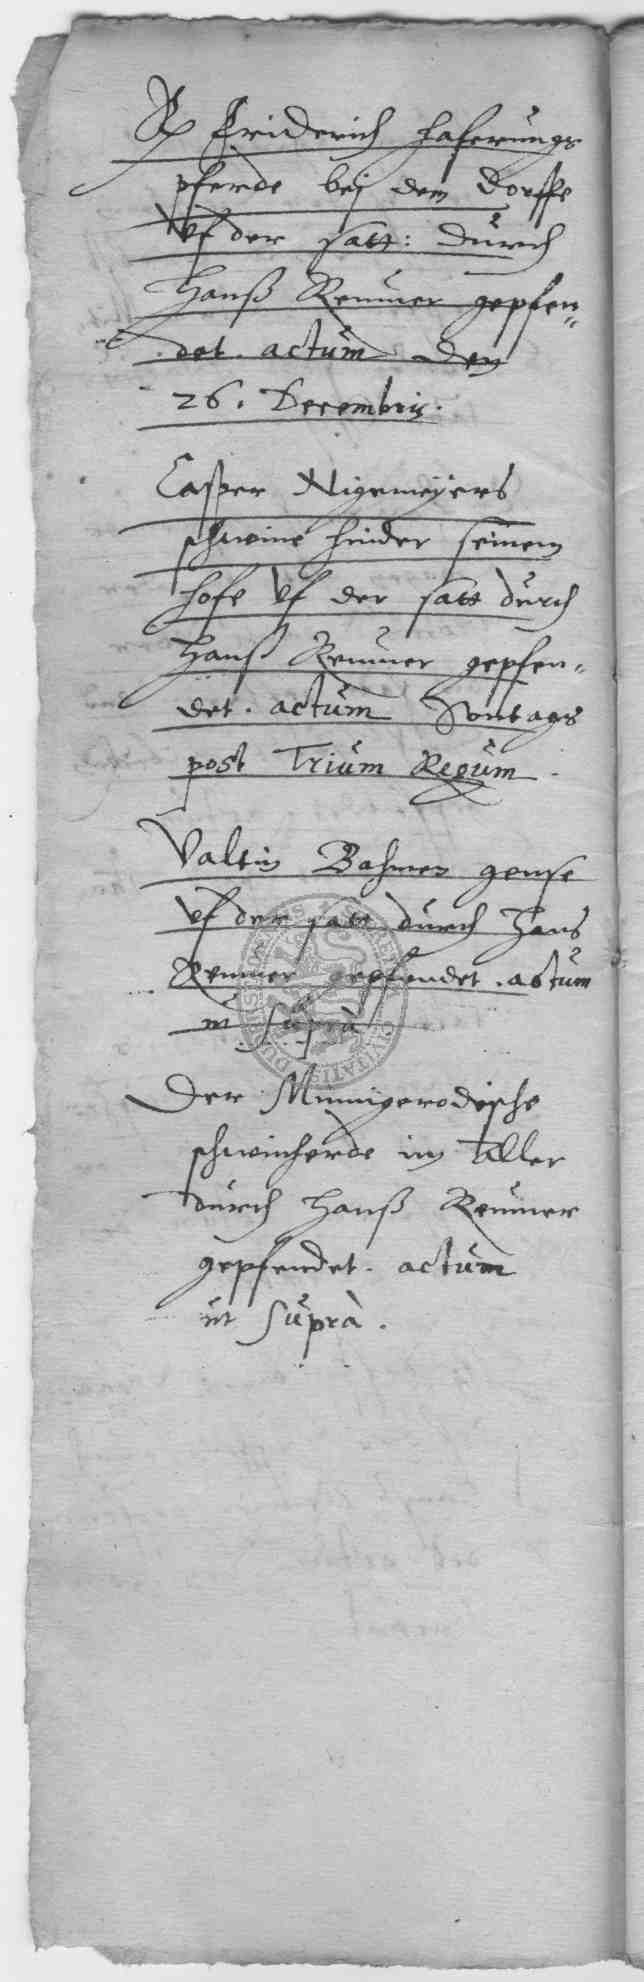 Friderich Haferungs
pferde bej dem Dorffe
vf der satt: durch
Hanß Renner gepfen„
det. actum den
26. Decembris.
Casper Nigemeÿers
schweine hinder seinem
hofe vf der satt durch
Hanß Renner gepfen„
det. actum Sontags
post Trium Regum.
Valtin Bahmen gense
vf der satt durch Hans
Renner gepfendet. actum
ut suprà
Der Minnigerodische
schweinherde im Aller
durch Hanß Renner
gepfendet. actum
ut suprà.
CIVITATIS